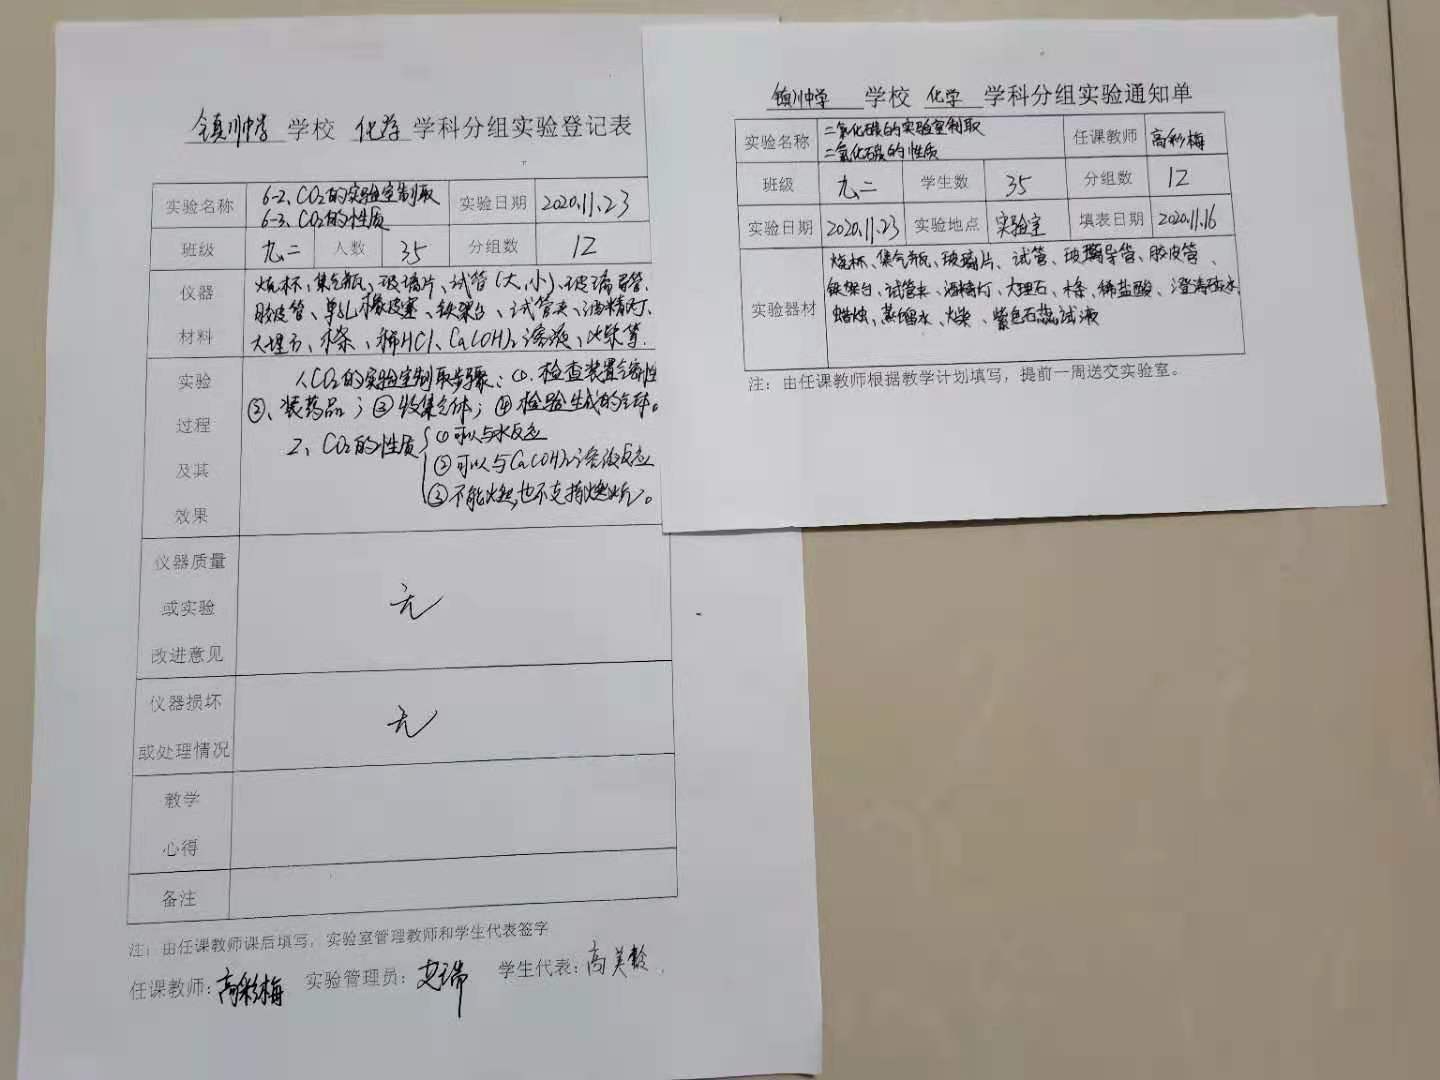 镇川中学 学校 化学 学科分组实验登记表
实验名称 6-2、CO₂的实验室制取 实验日期 2020.11.23
6-3、CO₂的性质
班级 九.二 人数 35 分组数 12
仪器 烧杯、集气瓶、玻璃片、试管(大、小)、玻璃导管、
胶皮管、单孔橡皮塞、铁架台、试管夹、酒精灯、
材料 大理石、木条、稀HCl、Ca(OH)₂溶液、火柴等.
实验 1、CO₂的实验室制取步骤:①.检查装置气密性
②、装药品;③收集气体;④检验生成的气体。
过程
2、CO₂的性质 ①可以与水反应
及其 ②可以与Ca(OH)₂溶液反应
③不能燃烧,也不支持燃烧。
效果
仪器质量
或实验 无
改进意见
仪器损坏 无
或处理情况
教学
心得
备注
注:由任课教师课后填写,实验室管理教师和学生代表签字
任课教师:高彩梅 实验管理员:艾瑞 学生代表:高美龄
镇川中学 学校 化学 学科分组实验通知单
实验名称 二氧化碳的实验室制取 任课教师 高彩梅
二氧化碳的性质
班级 九.二 学生数 35 分组数 12
实验日期 2020.11.23 实验地点 实验室 填表日期 2020.11.16
烧杯、集气瓶、玻璃片、试管、玻璃导管、胶皮管、
铁架台、试管夹、酒精灯、大理石、木条、稀盐酸、澄清石灰水、
实验器材 蜡烛、蒸馏水、火柴、紫色石蕊试液
注:由任课教师根据教学计划填写,提前一周送交实验室。